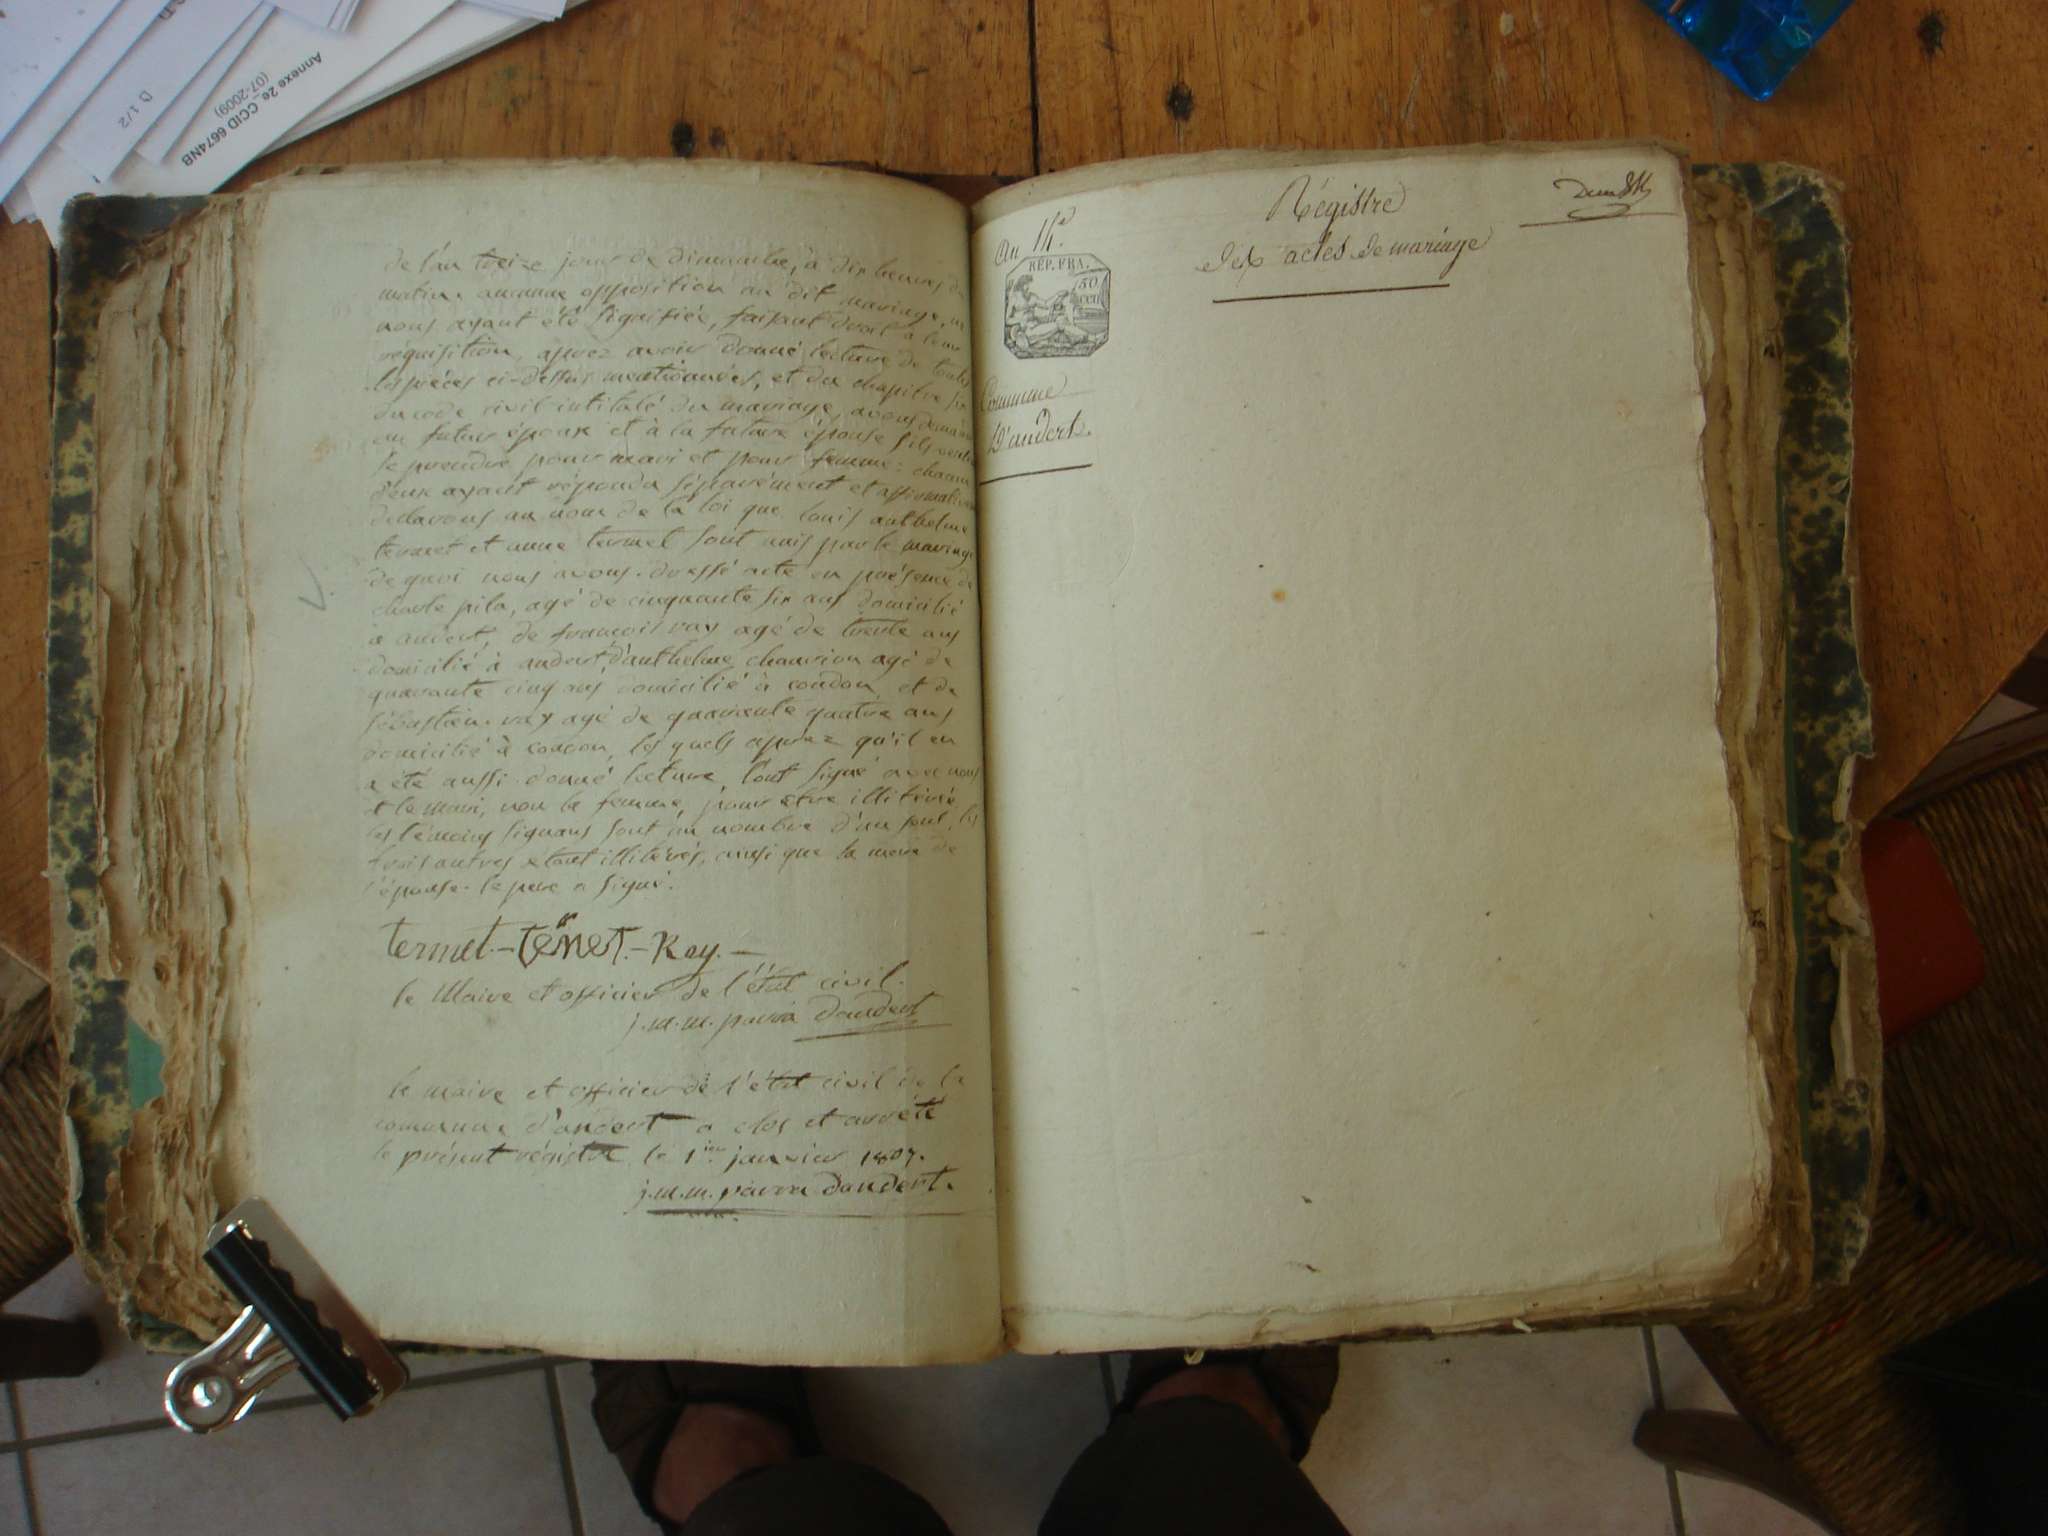 Annexe 2e CCID 6674NB
(07-2009)
D 1/2
de l'an treize jour de dimanche, à dix heures du
matin. aucune opposition au dit mariage, ne
nous ayant été signifiée, faisant droit a leur
réquisition, aprez avoir donné lecture de toutes
les piéces ci-dessus mentionnées, et du chapitre six
du code civil intitulé du mariage, avons demandé
au futur époux et à la future épouse s'ils veulent
se prendre pour mari et pour femme: chacun
d'eux ayant répondu séparément et affirmativement
declarons au nom de la loi que louis anthelme
termet et anne termet sont unis par le mariage
de quoi nous avons dressé acte en présence de
charle pila, agé de cinquante six ans domicilié
a andert, de françois ray agé de trente ans
domicilié à andert, d'anthelme chanvion agé de
quarante cinq ans domicilié à condon et de
sébastien ray agé de quarante quatre ans
domicilié à condon, les quels aprez qu'il en
a été aussi donné lecture, l'ont signé avec nous
et le mari, non la femme, pour etre illitérée
les témoins signans sont au nombre d'un seul, les
trois autres étant illitérés, ainsi que la mere de
l'épouse. le pere a signé.
termet. - tenet. - Rey. -
le Maire et officier de l'état civil.
j.m.m. parra dandert
le maire et officier de l'état civil de la
commune d'andert a clos et arrété
le présent régistre le 1ier janvier 1807.
j.m.m. parra dandert.
An 14e.
REP. FRA.
50
CEN
Commune
D'andert.
Régistre
des actes de mariage